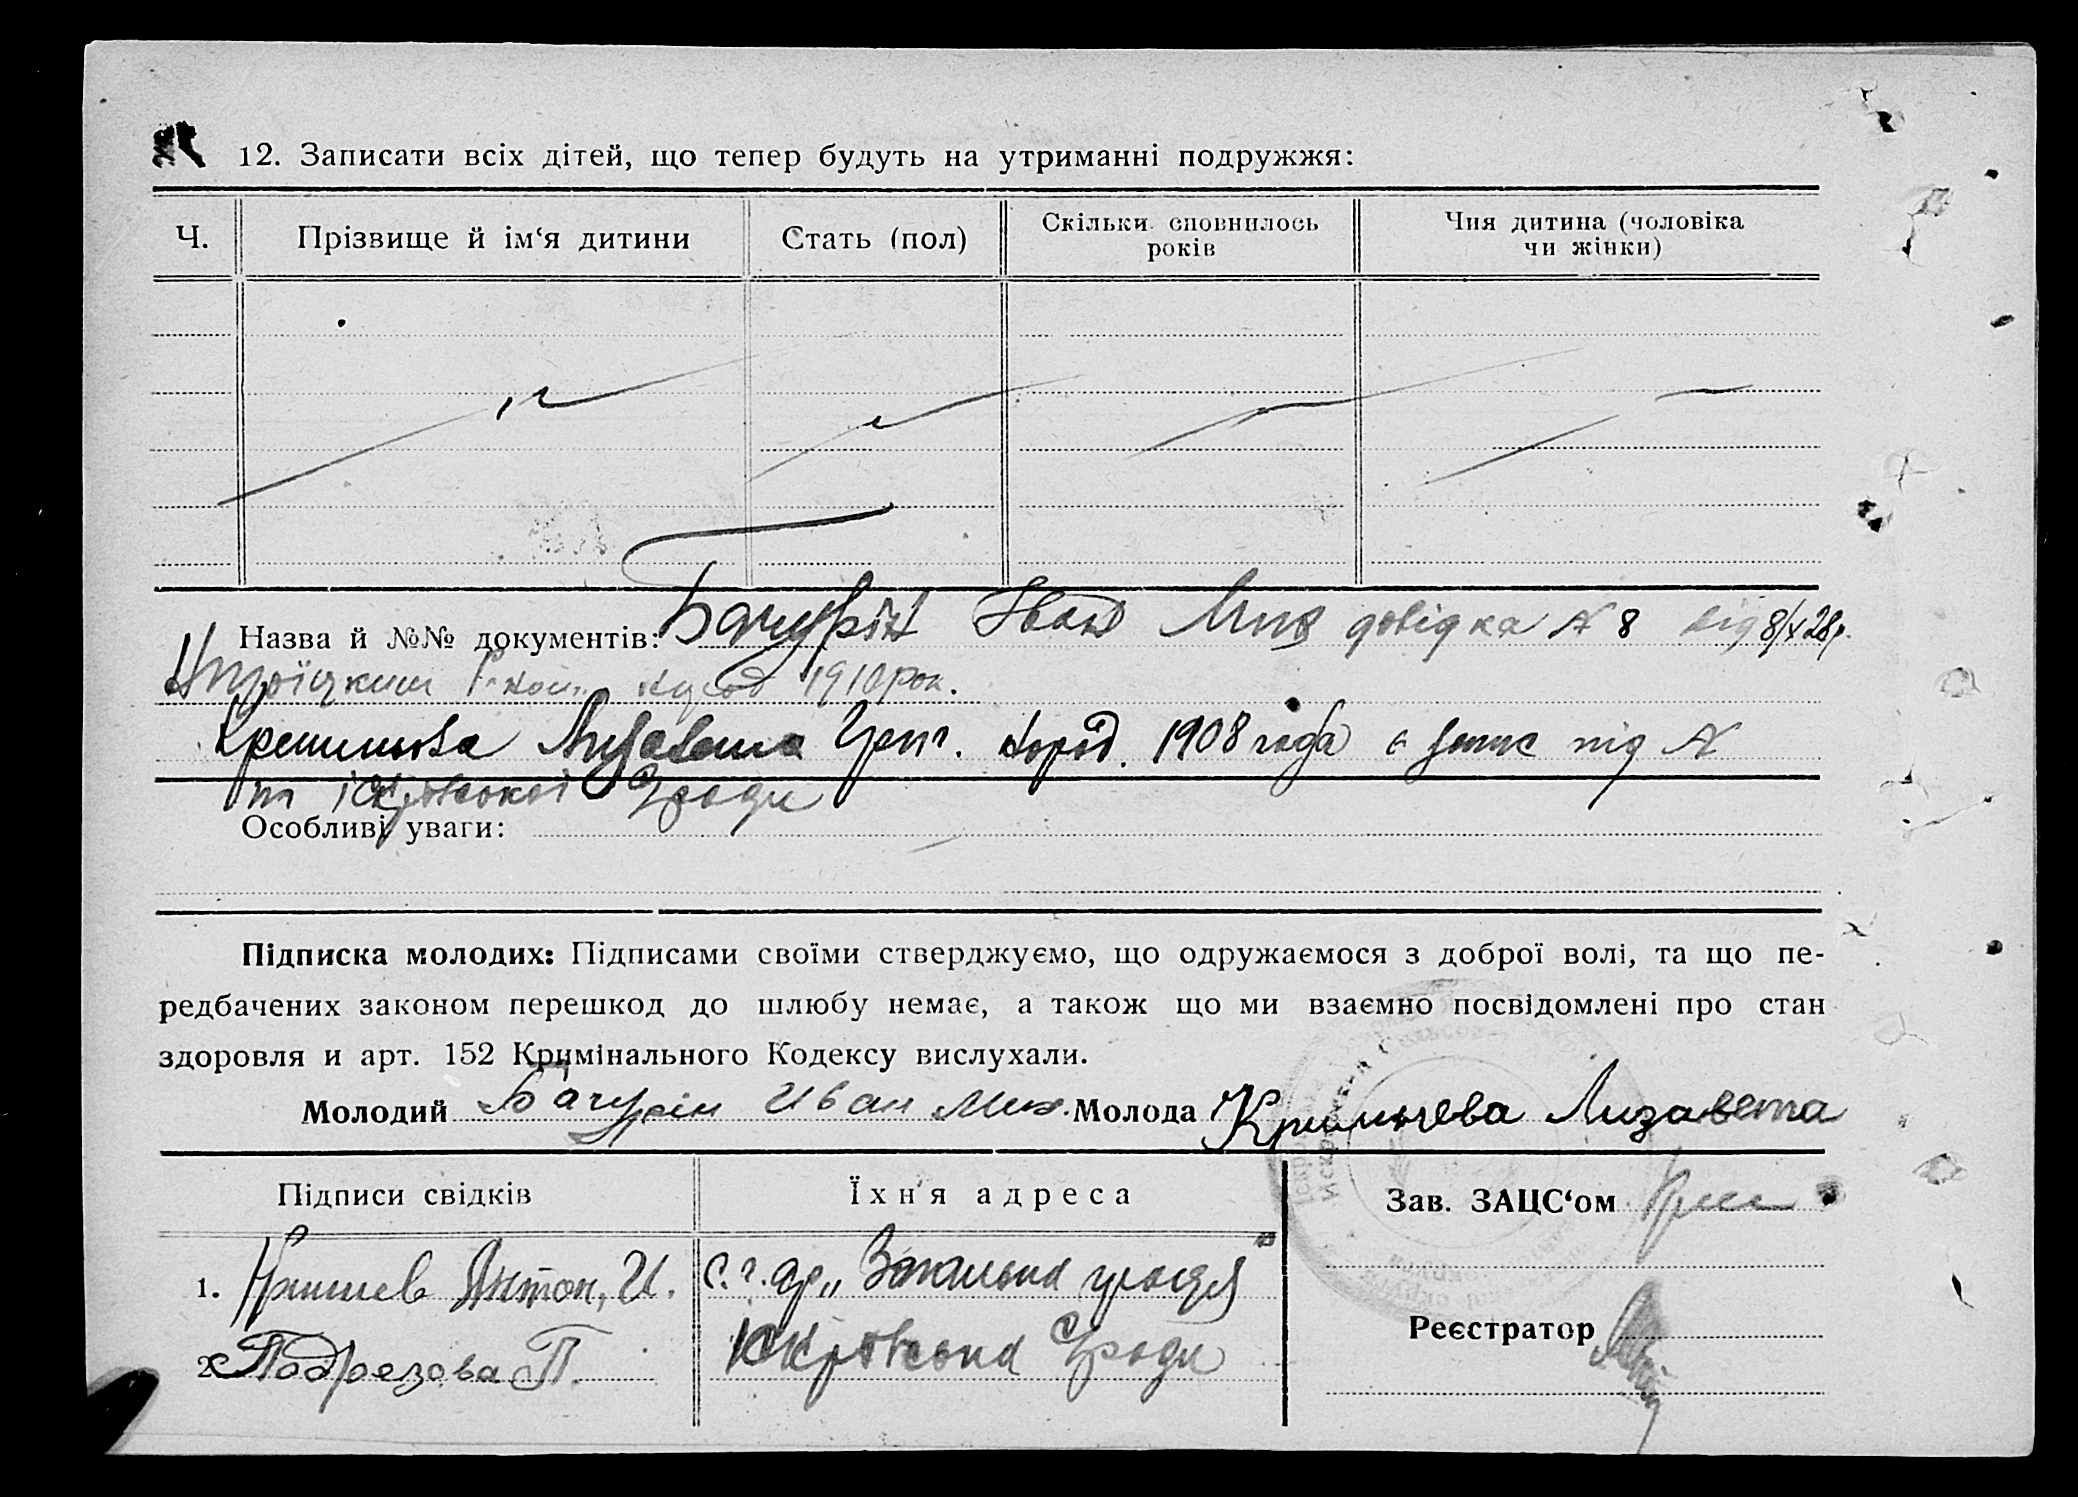 12. Записати всіх дітей, що тепер будуть на утриманні подружжя:
Ч. Прізвище й ім‘я дитини Стать (пол) Скільки сповнилось років Чия дитина (чоловіка чи жінки)
Назва й №№ документів: Бачурін Іван Мих довідка № 8 від 8/X 28р.
1910 рок.
Лизавета Григ. народ. 1908 года є запис під №
Особливі уваги:
Підписка молодих: Підписами своїми стверджуємо, що одружаємося з доброї волі, та що пе-
редбачених законом перешкод до шлюбу немає, а також що ми взаємно посвідомлені про стан
здоровля и арт. 152 Кримінального Кодексу вислухали.
Молодий Бачурін Иван Мих. Молода Лизавета
Підписи свідків Їхн'я адреса Зав. ЗАЦС‘ом
1. Антон, И. с.г. ар.,,
Реєстратор
2. Подрезова П. С/ради